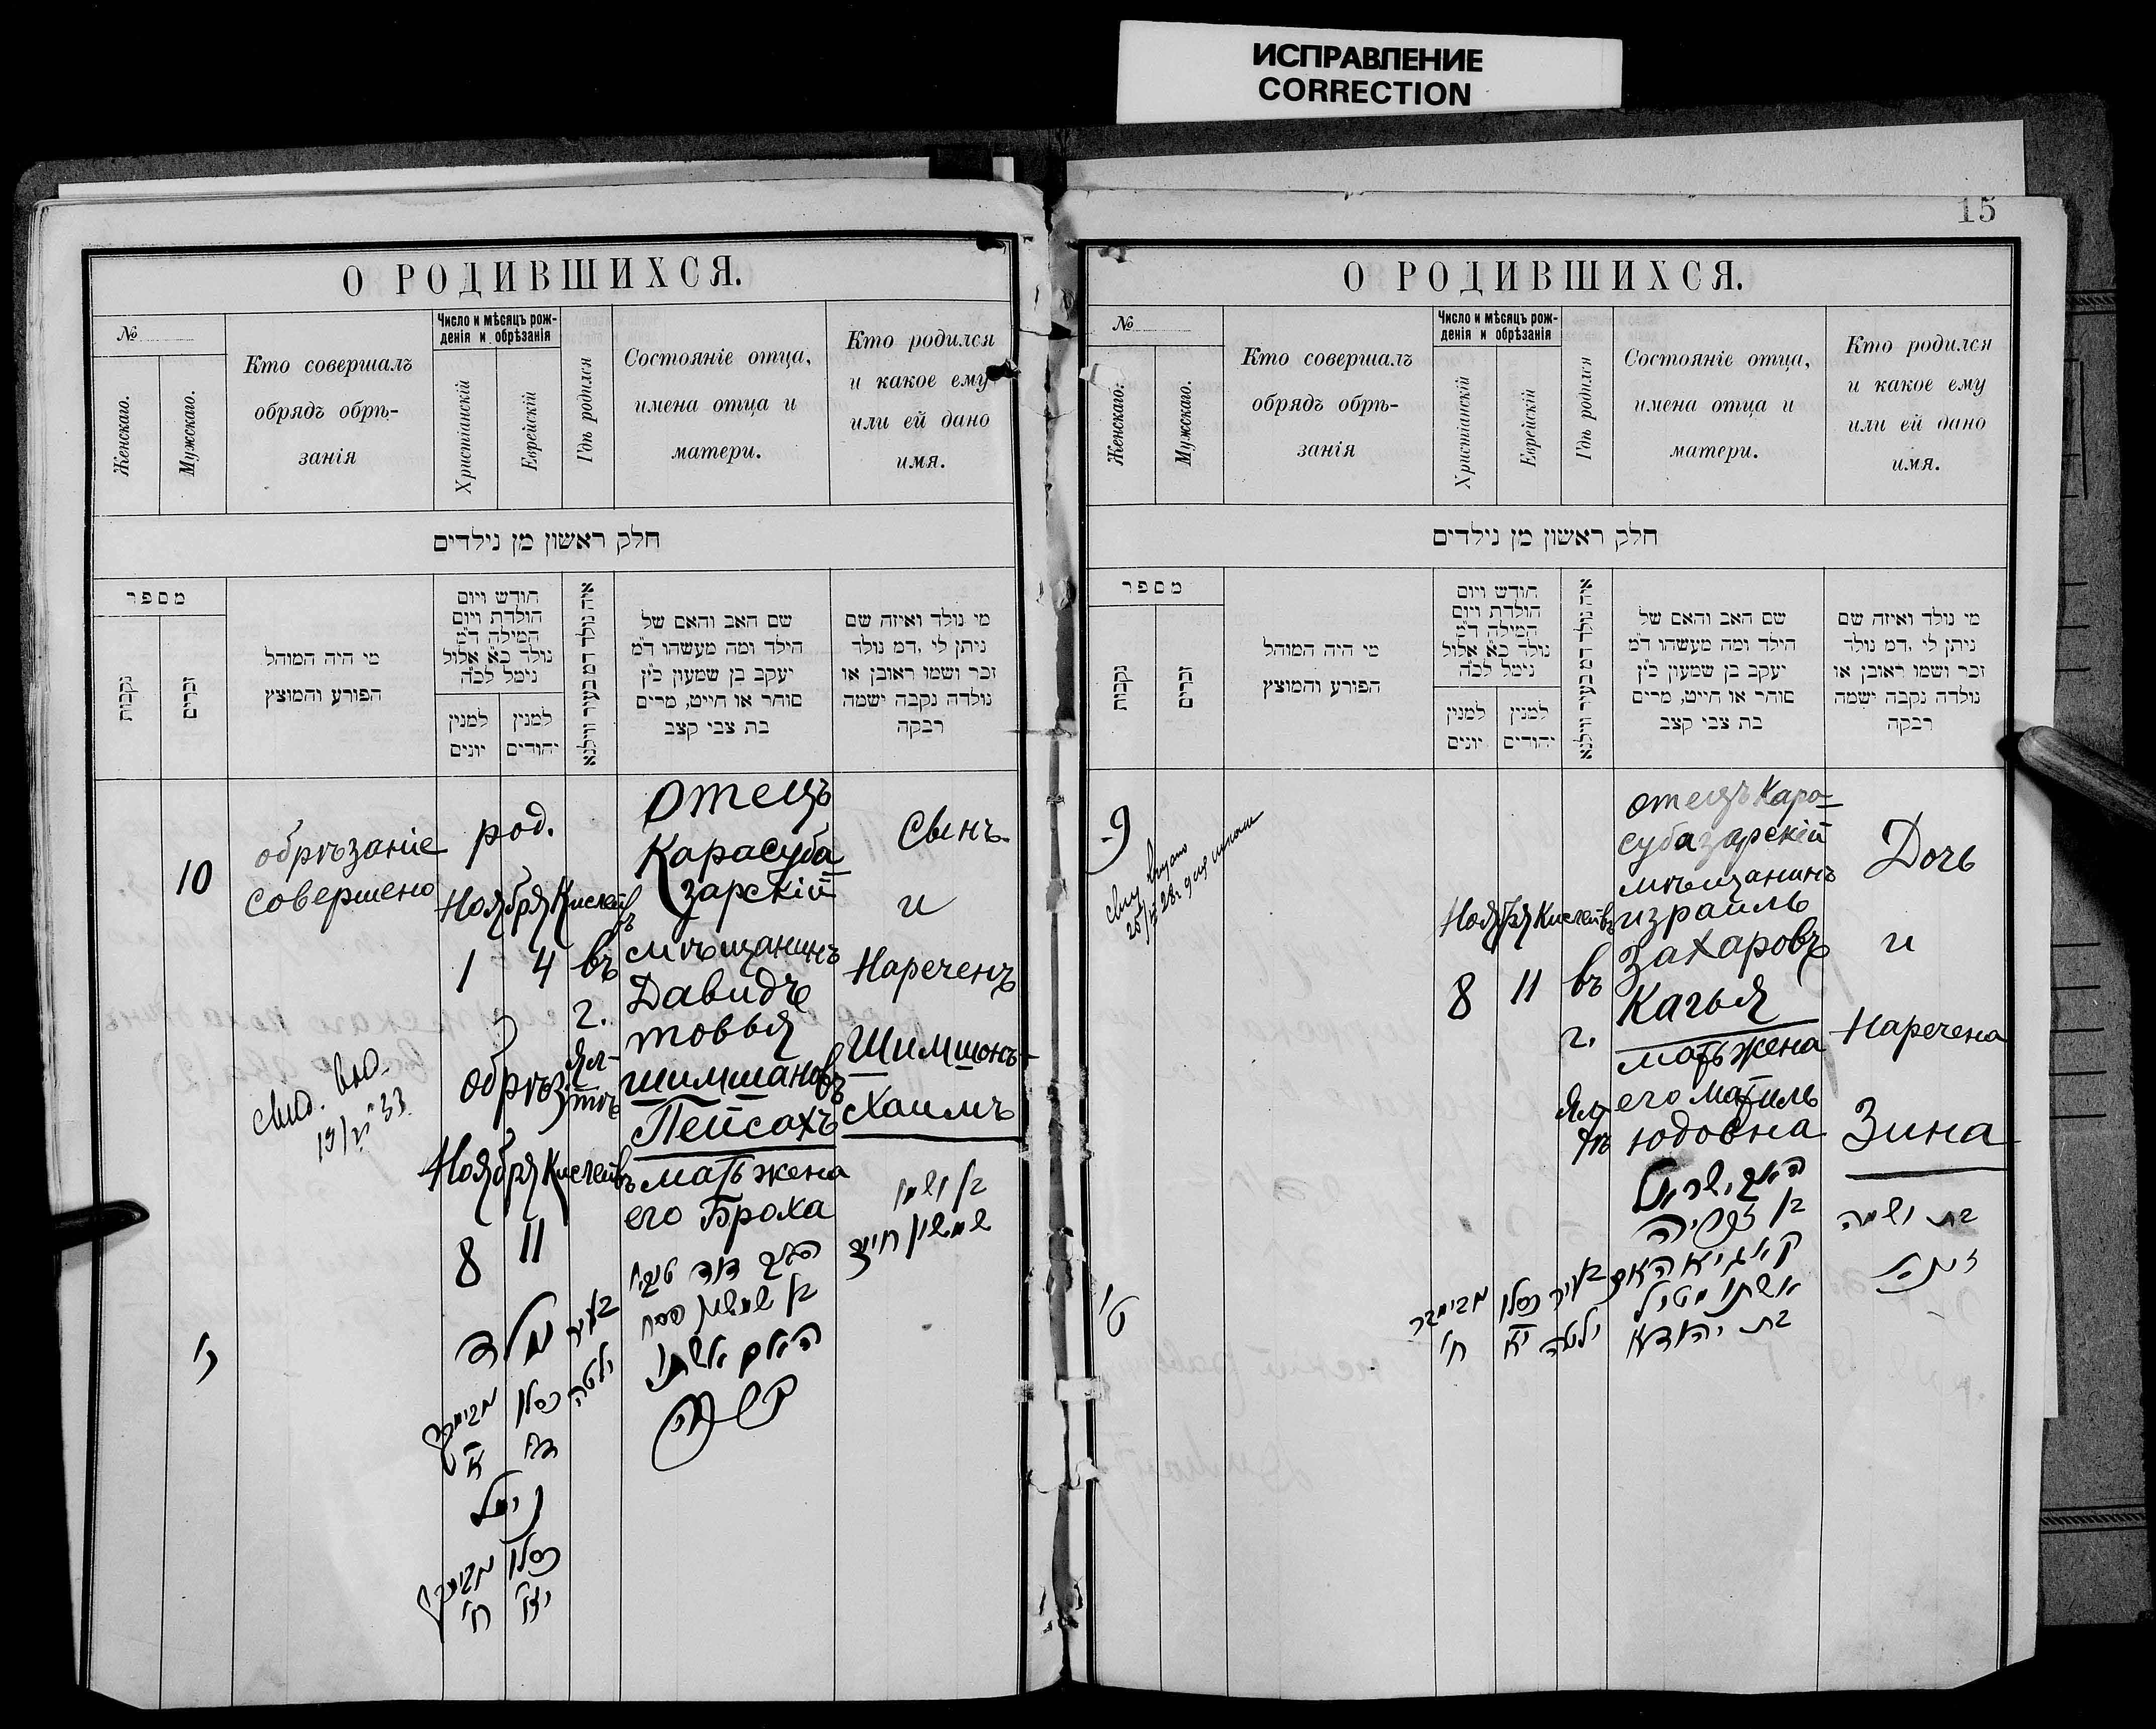 ИСПРАВЛЕНИЕ
CORRECTION
О РОДИВШИХСЯ.
№
Женскаго.
Мужскаго.
Кто совершалъ
обрядъ обрѣ-
занія
Число и мѣсяцъ рож-
денія и обрѣзанія
Христіанскій
Еврейскій
Гдѣ родился
Состояніе отца,
имена отца и
матери.
Кто родился
и какое ему
или ей дано
имя.
חלק ראשון מן נילדים
מספר
נקבות
זכרים
מי היה המוהל
הפורע והמוצץ
חודש ויום
הולדת ויום
המילה ד״מ
נולד כ״א אלול
נימל לכ״ה
למנין
יונים
למנין
יהודים
איה נולד דמ בעיר ווילנא
שם האב והאם של
הילד ומה מעשהו ד״מ
יעקב בן שמעון כ״ץ
סוחר או חייט, מרים
בת צבי קצב
מי נולד ואיזה שם
ניתן לי ,דמ נולד
זכר ושמו ראובן או
נולדה נקבה ישמה
רבקה
10
обрѣзаніе
совершено
свид. выд.
19/VI 33
род.
Ноября Кислевъ
1 4
обрѣз.
Ноября Кислевъ
8 11
въ
г.
Ял-
тѣ
отецъ
Карасуба
зарскій
мѣщанинъ
Давидъ
товья
шимшановъ
Пейсахъ
мать жена
его Броха
Сынъ
и
Нареченъ
Шимшонъ-
Хаимъ
י׳
נולד
כסלו
ד׳
א׳
נימל
כסלו
י״א
ח׳
בעיר
ילטה
האב דוד טוביה
בן שמשון פסח
האם אשתו
ברכה
בן ושמו
שמשון חיים
15
О РОДИВШИХСЯ.
№
Женскаго.
Мужскаго.
Кто совершалъ
обрядъ обрѣ-
занія
Число и мѣсяцъ рож-
денія и обрѣзанія
Христіанскій
Еврейскій
Гдѣ родился
Состояніе отца,
имена отца и
матери.
Кто родился
и какое ему
или ей дано
имя.
חלק ראשון מן נילדים
מספר
נקבות
זכרים
מי היה המוהל
הפורע והמוצץ
חודש ויום
הולדת ויום
המילה ד״מ
נולד כ״א אלול
נימל לכ״ה
למנין
יונים
למנין
יהודים
איה נולד דמ בעיר ווילנא
שם האב והאם של
הילד ומה מעשהו ד״מ
יעקב בן שמעון כ״ץ
סוחר או חייט, מרים
בת צבי קצב
מי נולד ואיזה שם
ניתן לי ,דמ נולד
זכר ושמו ראובן או
נולדה נקבה ישמה
רבקה
9
Ноября Кислевъ
8 11
въ
г.
Ял-
тѣ
отецъ Кара-
субазарскій
мѣщанинъ
израиль
Захаровъ
Кагья
мать жена
его Матиль
Юдовна
Дочь
и
Наречена
Зина
ט׳
ח׳
כסלו
י״א
בעיר
ילטה
האב ישראל
בן זכריה
קאגיא האם
אשתו מטיל
בת יהודא
בת ושמה